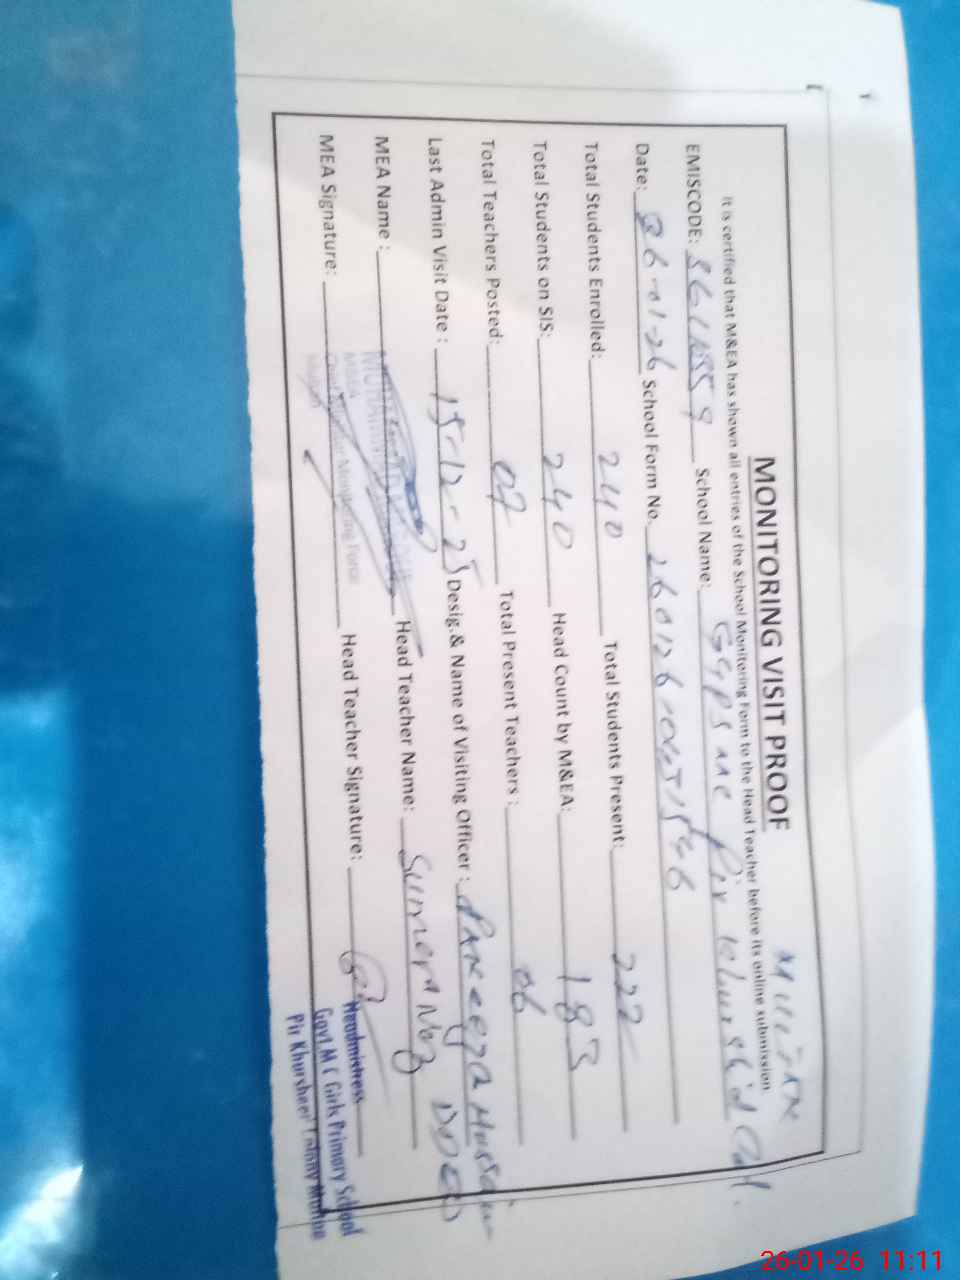 MULTAN
MONITORING VISIT PROOF
It is certified that M&EA has shown all entries of the School Monitoring Form to the Head Teacher before its online submission
EMISCODE: School Name: GGPS MC Pir Khurshid Col.
Date: 26-01-26 School Form No.
Total Students Enrolled: 240 Total Students Present: 222
Total Students on SIS: 240 Head Count by M&EA: 183
Total Teachers Posted: 07 Total Present Teachers : 06
Last Admin Visit Date : 15-12-25 Desig.& Name of Visiting Officer : Hussain
DDEO
MEA Name : Head Teacher Name: Sumera Naz
MEA Signature: Head Teacher Signature:
Monitoring Force
Multan
Headmistress
Govt M C Girls Primary School
Pir Khursheed Colony Multan
26-01-26 11:11